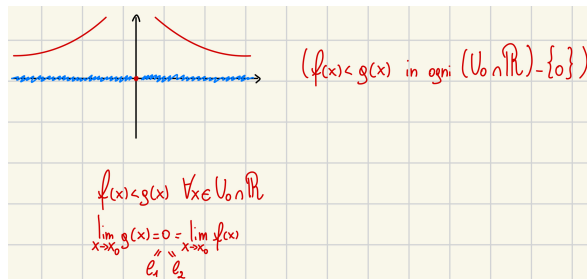 (f(x)<g(x) in ogni (U₀∩ℝ)-{0})
f(x)<g(x) ∀x∈U₀∩ℝ
lim x→x₀ g(x)=0=lim x→x₀ f(x)
ℓ₁ ℓ₂